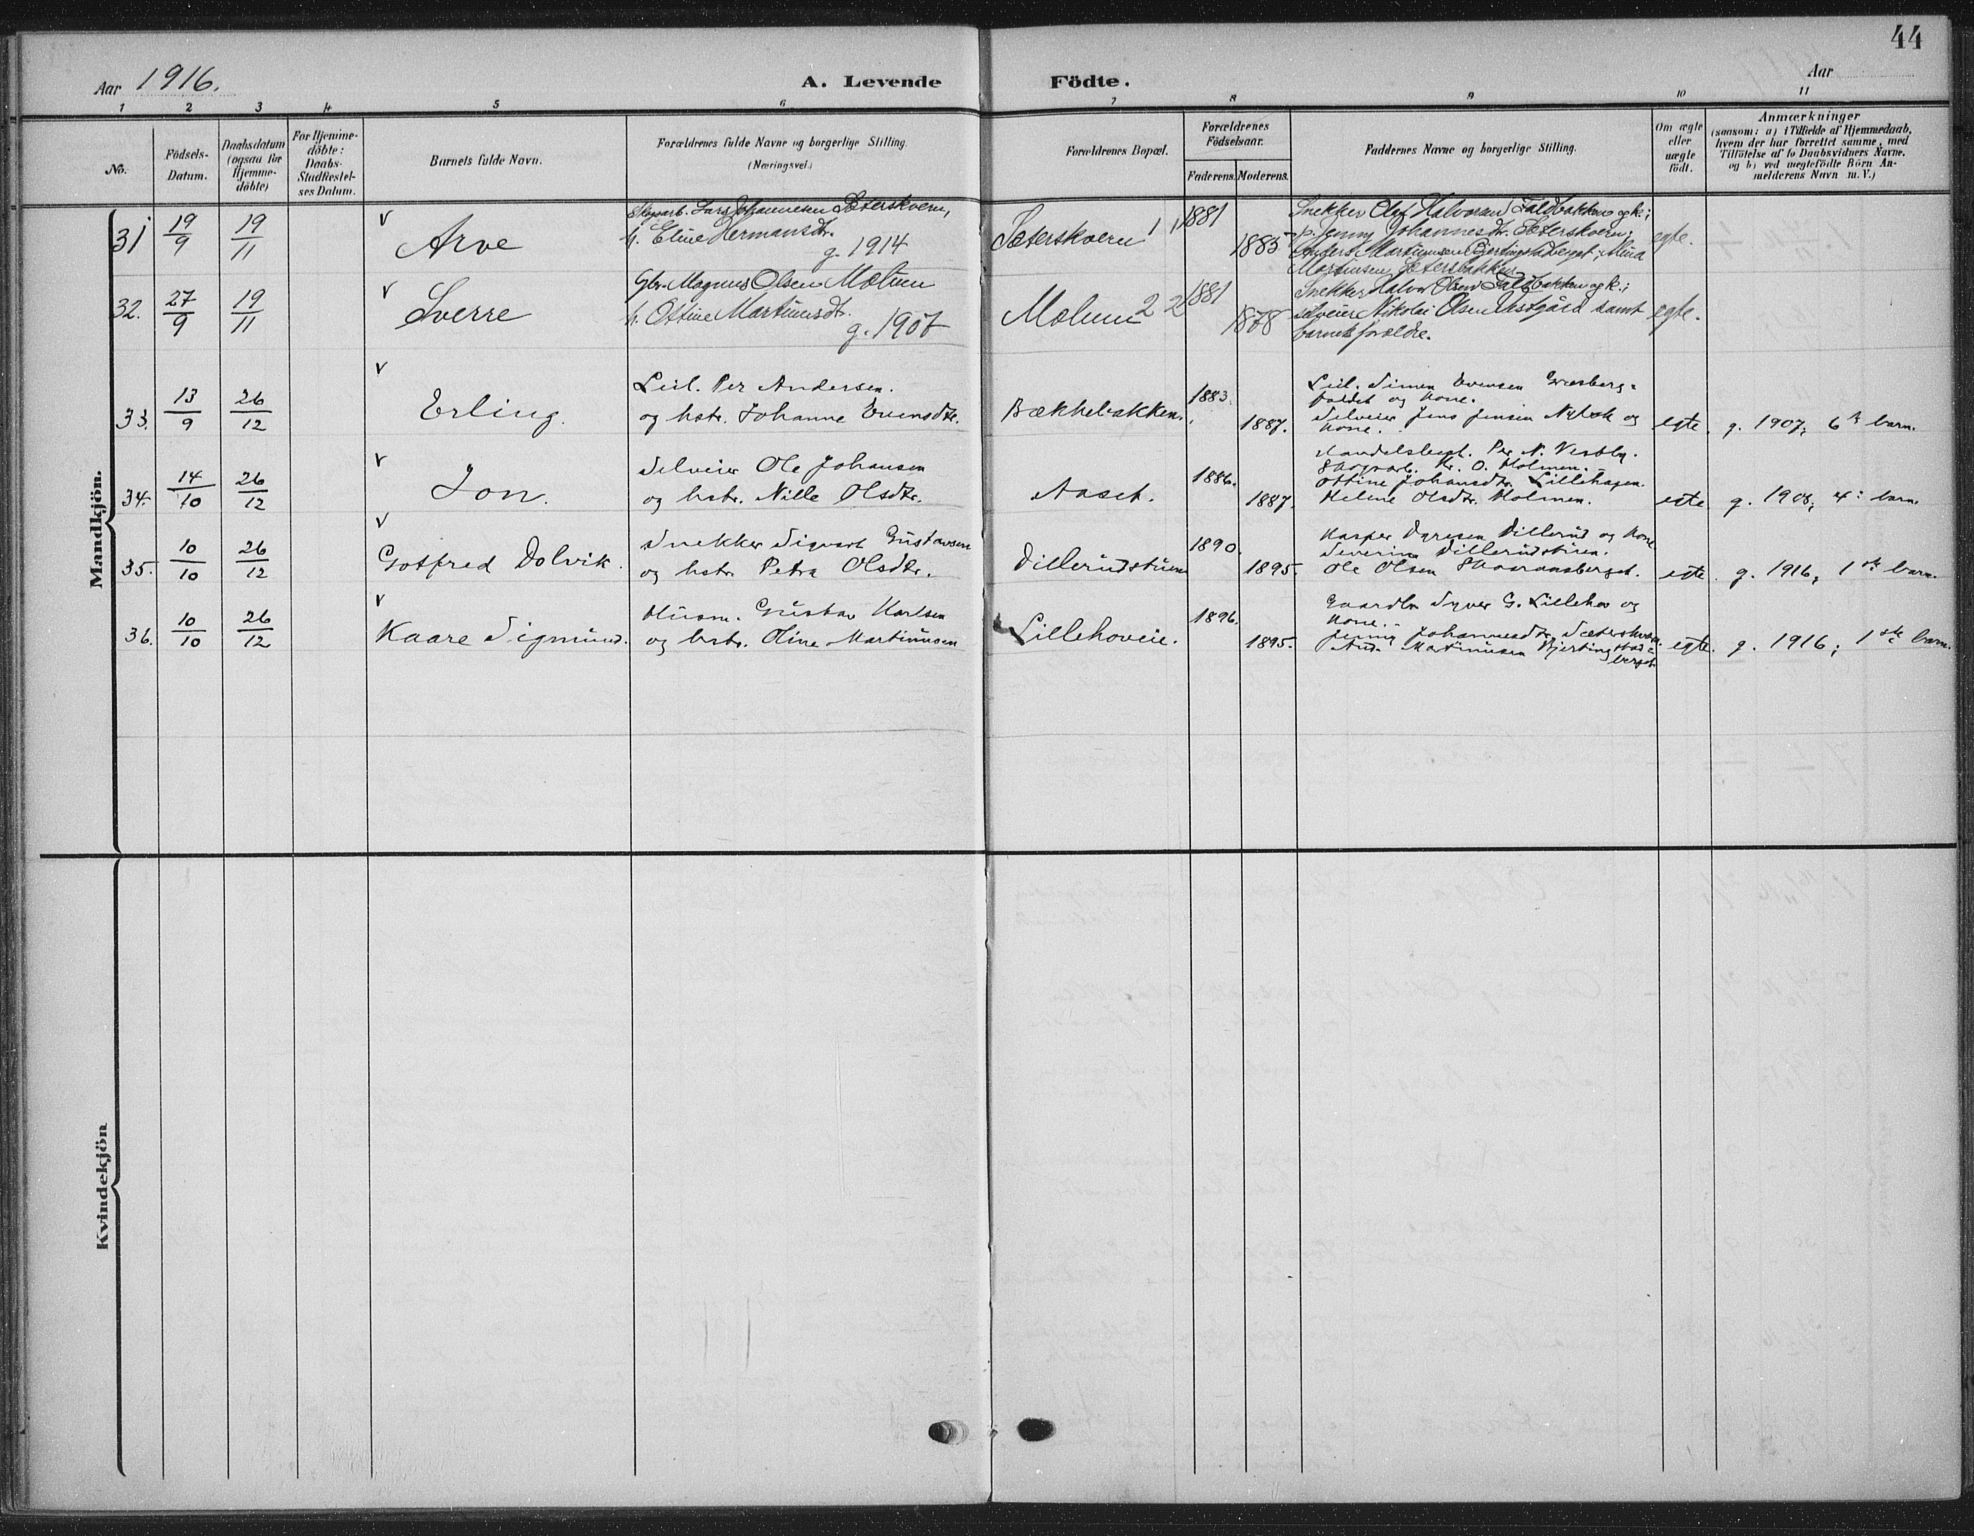 44
Aar 1916.
A. Levende Födte.
Aar
1 2 3 4 5 6 7 8 9 10 11
No.
Födsels-
Datum.
Daabsdatum
(ogsaa for
Hjemme-
döbte)
For Hjemme-
döbte:
Daabs-
Stadfæstel-
ses Datum.
Barnets fulde Navn.
Forældrenes fulde Navne og borgerlige Stilling.
(Næringsvei.)
Forældrenes Bopæl.
Forældrenes
Födselsaar.
Faderens. Moderens.
Faddernes Navne og borgerlige Stilling.
Om ægte
eller
uægte
födt.
Anmærkninger
(saasom: a) i Tilfælde af Hjemmedaab,
hvem der har forrettet samme, med
Tilföielse af to Daabsvidners Navne.
og b) ved uegtefödte Börn An-
melderens Navn m. V.)
Mandkjön.
31 19/9 19/11
v
Arve
Skogsarb. Lars Johannesen Sæterskvern,
h. Eline Hermansdtr.
g. 1914
Sæterskvern 1 1
1881
1885
Snekker Olaf Halvorsen Faldbakken og k.;
p. Jenny Johannesdtr. Sæterskvern;
Anders Martinusen Bjertingstadberget; Mina
Martinsen Sætersbakken
egte.
32. 27/9 19/11
v
Sverre
Gbr. Magnus Olsen Moluen
h. Ottine Martinusdtr.
g. 1907
Moluen 2 2
1881
1878
Snekker Halvor Olsen Faldbakken og k.;
selveier Nikolai Olsen samt
barnets forældre.
egte.
33. 13/9 26/12
v
Erling.
Leil. Per Andersen.
og hstr. Johanne Evensdtr.
Bækkebakken.
1883.
1887.
Leil. Simen Evensen Græsberg-
faldet og kone.
Selveier Jens Jensen og
kone.
egte. g. 1907; 6te barn.
34. 14/10 26/12
v
Jon.
Selveier Ole Johansen
og hstr. Nille Olsdtr.
Aaset.
1886.
1887.
Handelsbest. Per N. Visbly.
Skogsarb. Kr. O. Holmen.
Ottine Johansdtr. Lillehagen.
Helene Olsdtr. Holmen.
egte g. 1908; 4: barn.
35. 10/10 26/12
v
Gotfred Dolvik.
Snekker Sigvart Gustavsen
og hstr. Petra Olsdtr.
Dillerudstuen
1890.
1895.
Kasper Dyresen Dillerud og kone.
Severine Dillerudstuen.
Ole Olsen
egte. g. 1916; 1ste barn.
36. 10/10 26/12
v
Kaare Sigmund.
Husm. Gustav Karlsen
og hstr. Oline Martinusen
Lillehoveie.
1896.
1895.
Gaardbr. Syver G. Lillehov og
kone.
Jenny Johannesdtr. Sæterskvern.
And. Martinusen Bjertingstad-
berget.
egte. g. 1916; 1ste barn.
Kvindekjön